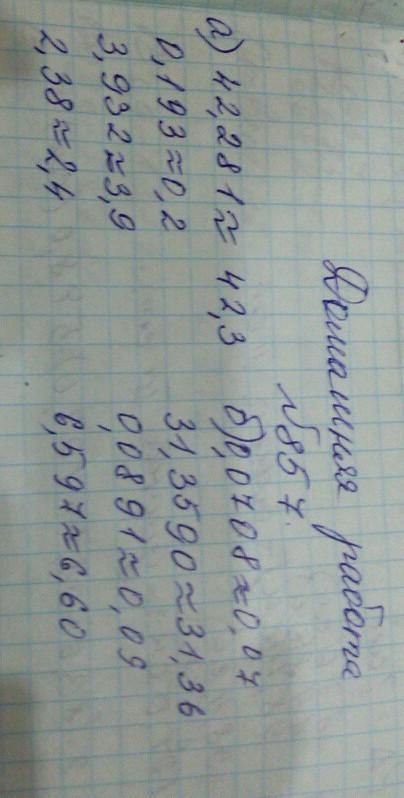 Домашняя работа
№857.
а) 42,281≈ 42,3
0,193≈0,2
3,932≈3,9
2,38≈2,4
б) 0,0708≈0,07
31,3590≈31,36
0,0891≈0,09
6,597≈6,60